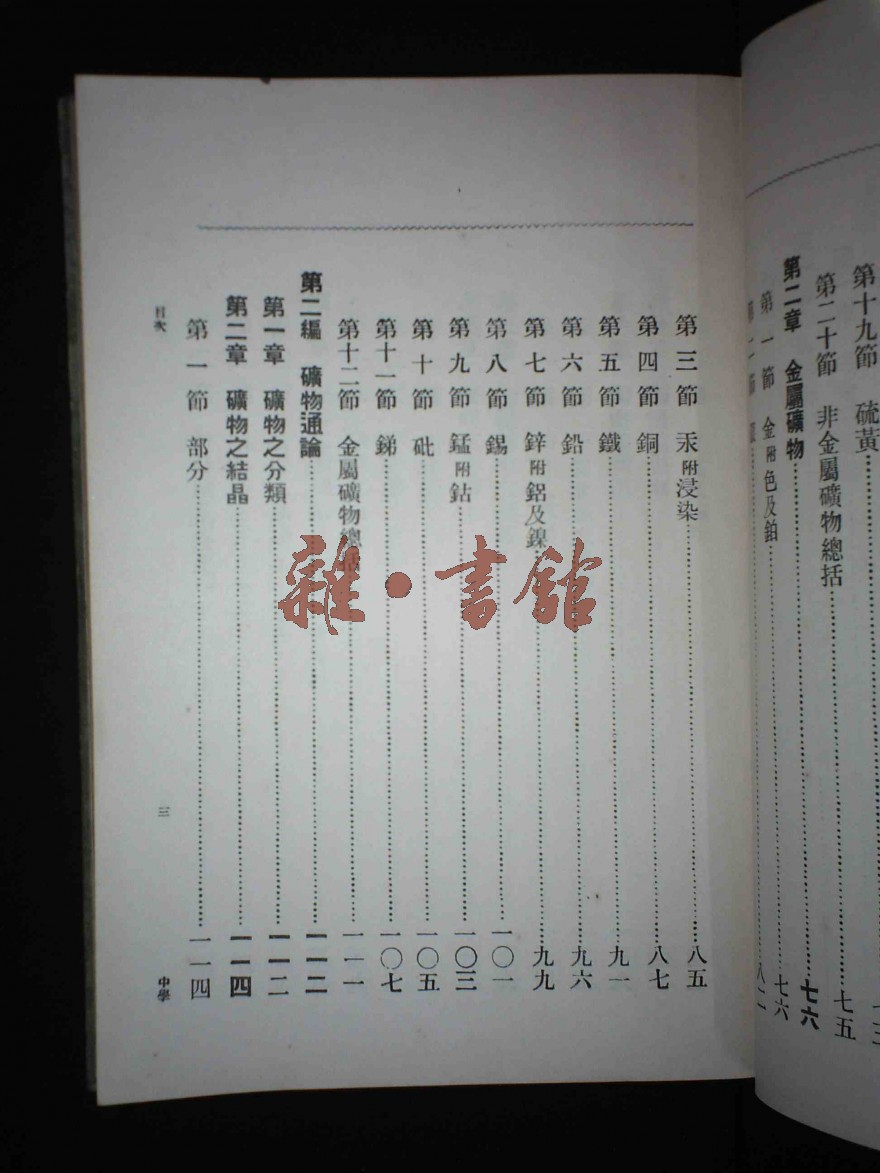 第十九節 硫黃
第二十節 非金屬礦物總括 七五
第二章 金屬礦物 七六
第一節 金附色及鉑 七六
第二節 八二
第三節 汞附浸染 八五
第四節 銅 八七
第五節 鐵 九一
第六節 鉛 九六
第七節 鋅附鋁及鎳 九九
第八節 錫 一〇一
第九節 錳附鈷 一〇三
第十節 砒 一〇五
第十一節 銻 一〇七
第十二節 金屬礦物總括 一一一
第二編 礦物通論 一一二
第一章 礦物之分類 一一二
第二章 礦物之結晶 一一四
第一節 部分 一一四
目次 三 中學
雜·書館